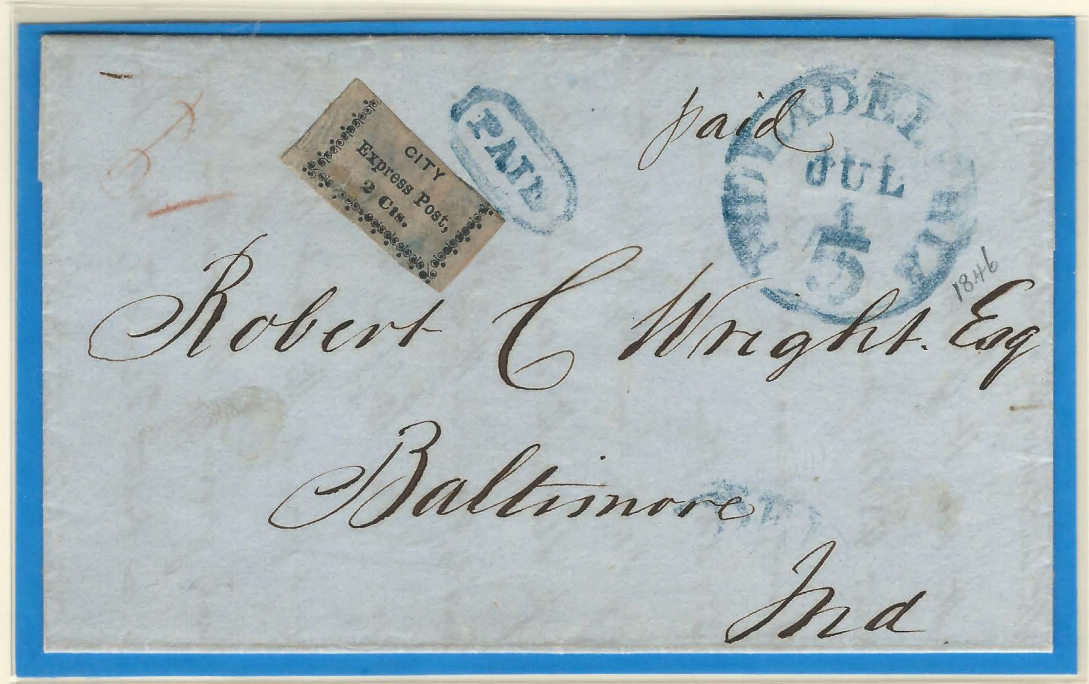 paid
CITY
Express Post,
2 Cts.
PAID
PHILADELPHIA
JUL
1
5
1846
Robert C Wright. Esq
Baltimore
Md